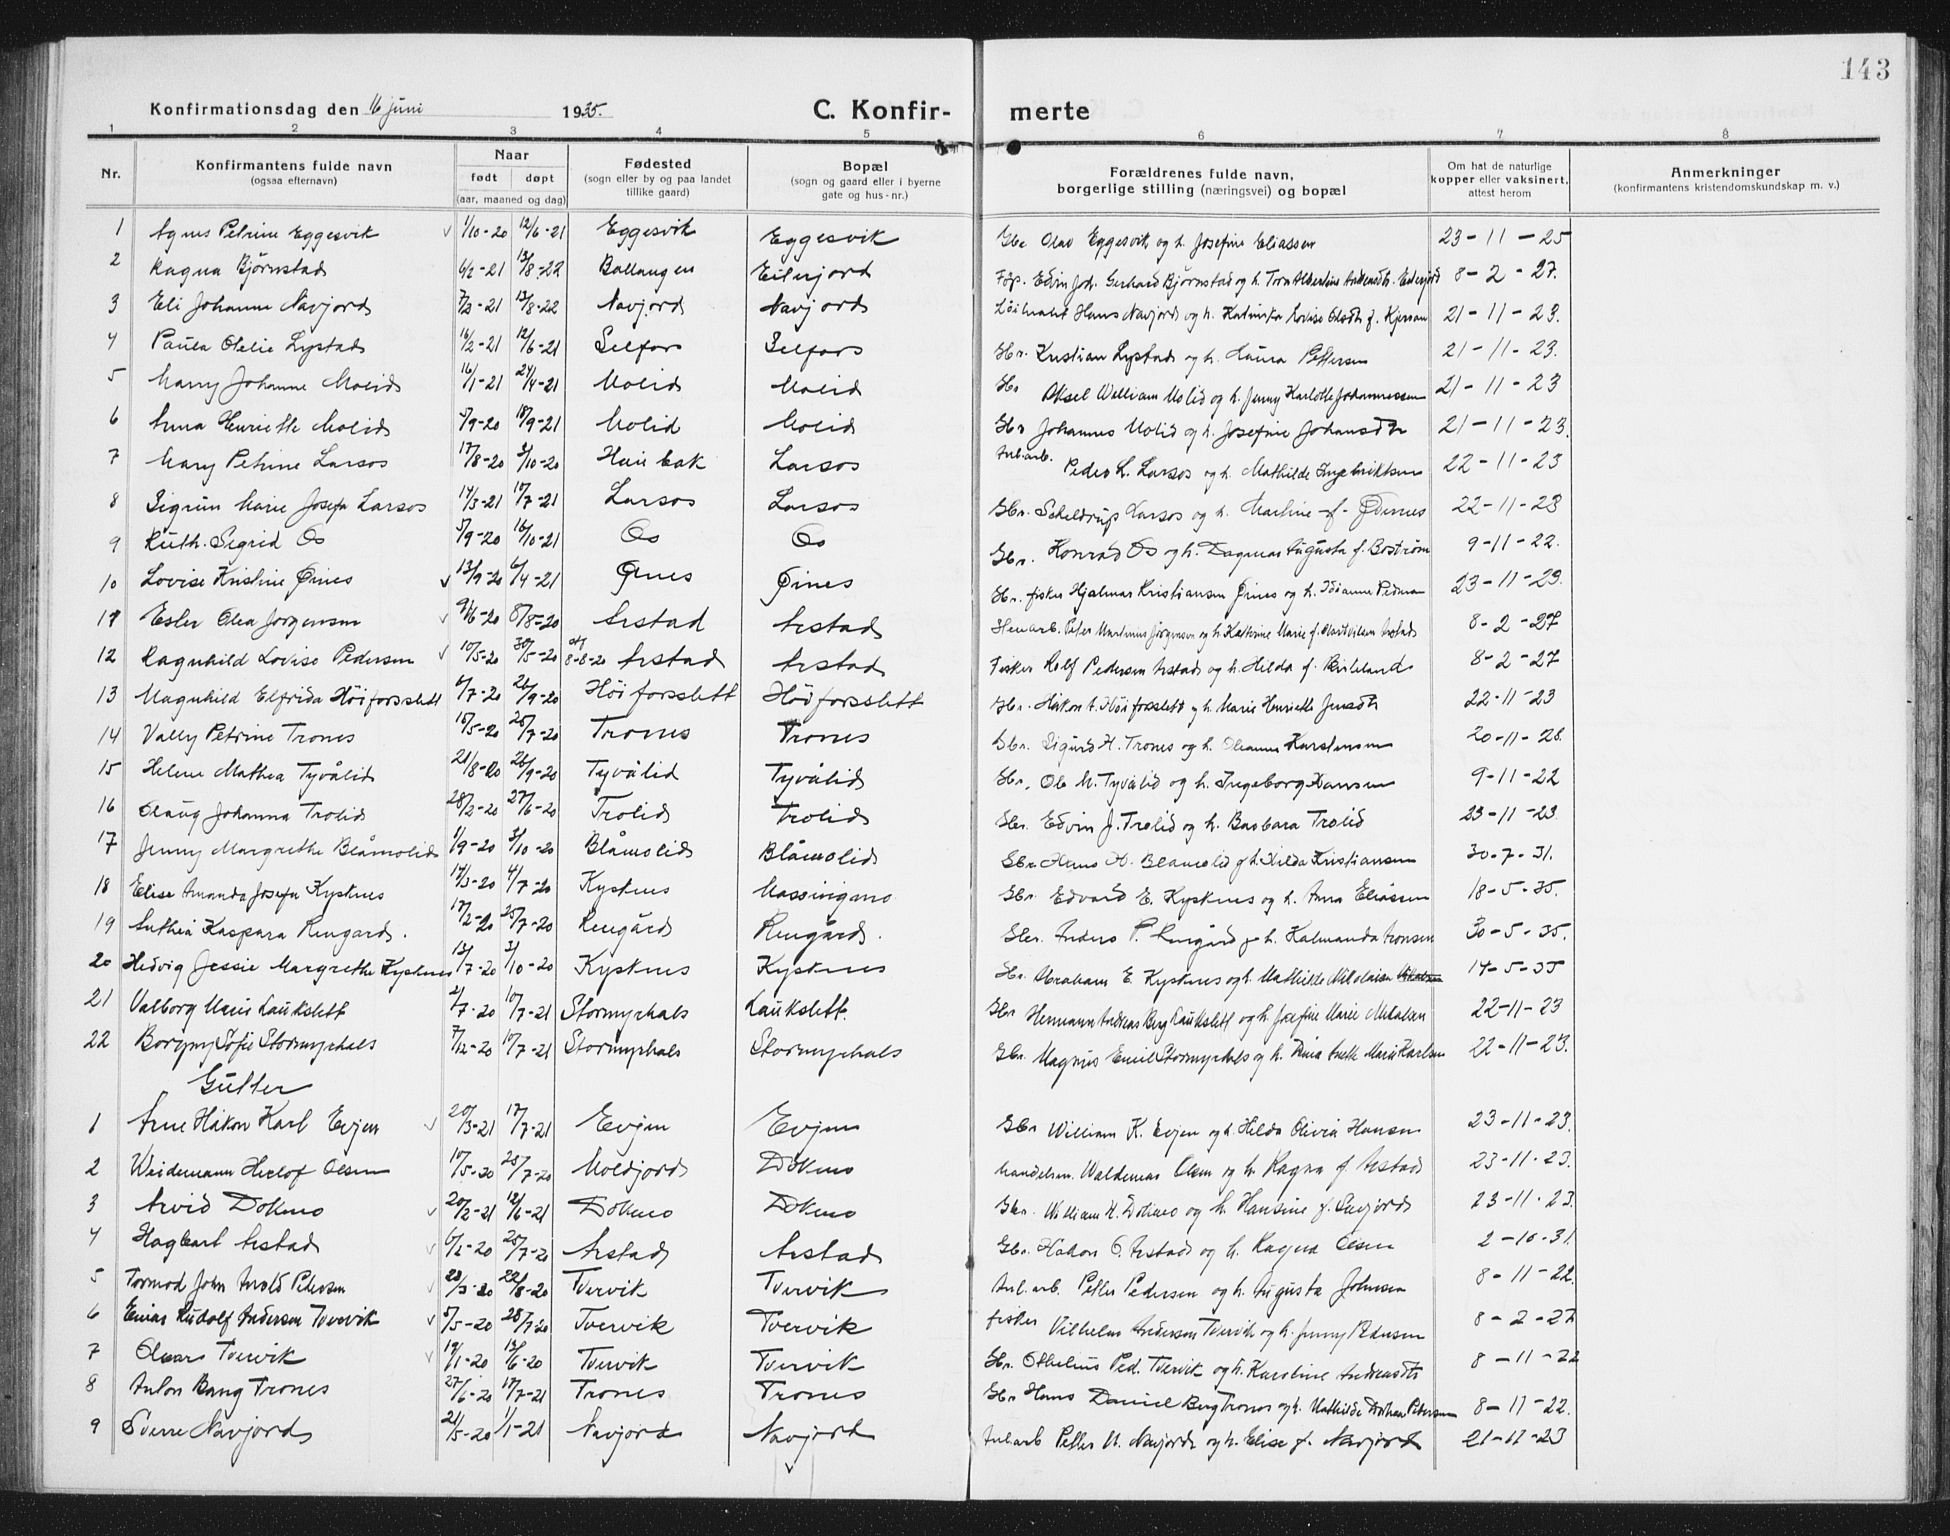 143
Konfirmationsdag den 16 juni 1935. C. Konfir- merte
1 2 3 4 5 6 7 8
Nr. Konfirmantens fulde navn (ogsaa efternavn) Naar født døpt (aar, maaned og dag) Fødested (sogn eller by og paa landet tillike gaard) Bopæl (sogn og gaard eller i byerne gate og hus-nr.) Forældrenes fulde navn, borgerlige stilling (næringsvei) og bopæl Om hat de naturlige kopper eller vaksinert, attest herom Anmerkninger (konfirmantens kristendomskundskap m. v.)
1 Agnes Petrine Eggesvik 1/10-20 12/6-21 Eggesvik Eggesvik Gbr Olav Eggesvik og h. Josefine Eliassen 23-11-25
2 Ragna Bjørnstad 6/2-21 13/8-22 Ballangen Eiterjord Edvin Joh. Gerhard Bjørnstad og h. 8-2-27.
3 Eli Johanne Navjord 7/3-21 13/8-22 Navjord Navjord Hans Navjord og h. Katinka Lovise Olsdtr f. 21-11-23.
4 Paula Otelie Lystad 16/2-21 12/6-21 Selfors Selfors Gbr. Kristian Lystad og h. Laura Pettersen 21-11-23.
5 Marry Johanne Molid 16/1-21 24/4-21 Molid Molid Gbr Aksel William Molid og h. Jenny Karlotte Johannessen 21-11-23
6 Anna Henriette Molid 5/9-20 18/9-21 Molid Molid Gbr Johannes Molid og h. Josefine Johansdtr 21-11-23.
7 Mary Petrine Larsos 17/8-20 3/10-20 Larsos Anl.arb. Peder L. Larsos og h. Mathilde Ingebriktsen 22-11-23
8 Sigrun Marie Josefa Larsos 14/3-21 10/7-21 Larsos Larsos Gbr. Scheldrup Larsos og h. Martine f. 22-11-23
9 Ruth Sigrid Os 5/9-20 16/10-21 Os Os Gbr. Konrad Os og h. Dagmar Augusta f. Boström 9-11-22.
10 Lovise Kristine Øines 13/9-20 6/4-21 Øines Øines Gbr. fisker Hjalmar Kristiansen Øines og h. 23-11-23.
11 Ester Olea Jørgensen 9/6-20 8/8-20 Arstad Arstad Peter Martinius Jørgensen og h. Kathrine Marie f. 8-2-27
12 Ragnhild Lovise Pedersen 10/5-20 30/5-20 8-8-20 Arstad Arstad Fisker Rolf Pedersen Arstad og h. Hilda f. 8-2-27
13 Magnhild Elfrida Höiforsslett 6/7-20 26/9-20 Höiforsslett Höiforsslett Gbr. Håkon A. Höiforsslett og h. Marie Henriette Jensdtr 22-11-23
14 Vally Petrine Trones 15/5-20 25/7-20 Trones Trones Gbr. Sigurd H. Trones og h. Oleanna Karstensen 20-11-28.
15 Helene Mathea Tyvålid 21/8-20 26/9-20 Tyvålid Tyvålid Gbr. Ole M. Tyvålid og h. Ingeborg Hansen 9-11-22
16 Olaug Johanna Trolid 28/2-20 27/6-20 Trolid Trolid Gbr. Edvin J. Trolid og h. Barbara Trolid 23-11-23
17 Jenny Margrethe Blåmolid 1/9-20 3/10-20 Blåmolid Blåmolid Gbr Hans H. Blåmolid og h. Hilda Kristiansen 30-7-31.
18 Elise Amanda Josefa Kystnes 14/3-20 4/7-20 Kystnes Massivigmo Gbr. Edvard E. Kystnes og h. Anna Eliassen 18-5-35.
19 Anthea Kaspara Rengård. 17/2-20 25/7-20 Rengård Rengård. Gbr. Anders P. Rengård og h. Kalmanda Aronsen 30-5-35.
20 Hedvig Jessie Margrethe Kystnes 13/7-20 3/10-20 Kystnes Kystnes Gbr. Abraham E. Kystnes og h. Mathilde 14-5-35
21 Valborg Marie Laukslett 2/7-20 10/7-21 Stormyrhals Laukslett. Gbr Hermann Andreas Berg Laukslett og h. Josefine Marie Mikalsen 22-11-23
22 Borgny Sofie Stormyrhals 7/12-20 10/7-21 Stormyrhals Stormyrhals Gbr. Magnus Emil Stormyrhals og h. Anette Marie Karlsen 22-11-23.
Gutter
1 Arne Håkon Karl Evjen 20/3-21 17/7-21 Evjen Evjen Gbr William K. Evjen og h. Hilda Olivia Hansen 23-11-23.
2 Weidemann Herlof Olsen 10/5-20 25/7-20 Moldjord Dokmo Handelsm. Waldemar Olsen og h. Ragna f. Arstad 23-11-23.
3 Arvid Dokmo 20/2-21 12/6-21 Dokmo Dokmo Gbr. William H. Dokmo og h. Hansine f. 23-11-23.
4 Hagbart Arstad 6/2-20 25/7-20 Arstad Arstad Gbr. Håkon O. Arstad og h. Ragna Olsen 2-10-31.
5 Tormod John Arold Pedersen 28/3-20 22/8-20 Tvervik Tvervik Anl.arb. Petter Pedersen og h. Augusta Johnsen 8-11-22.
6 Einar Rudolf Andersen Tvervik 5/5-20 25/7-20 Tvervik Tvervik fisker Vilhelm Andersen Tvervik og h. Jenny Pedersen 8-2-27
7 Olvar Tvervik 19/1-20 13/6-20 Tvervik Tvervik Gbr. Othelius Ped. Tvervik og h. Karoline Andreasdtr 8-11-22
8 Anton Bang Trones 27/6-20 17/7-21 Trones Trones Gbr Hans Daniel Berg Trones og h. Mathilde Pedersen 8-11-22.
9 Sverre Navjord 21/5-20 1/1-21 Navjord Navjord Anl.arb Petter N. Navjord og h. Elise f. Navjord 21-11-23